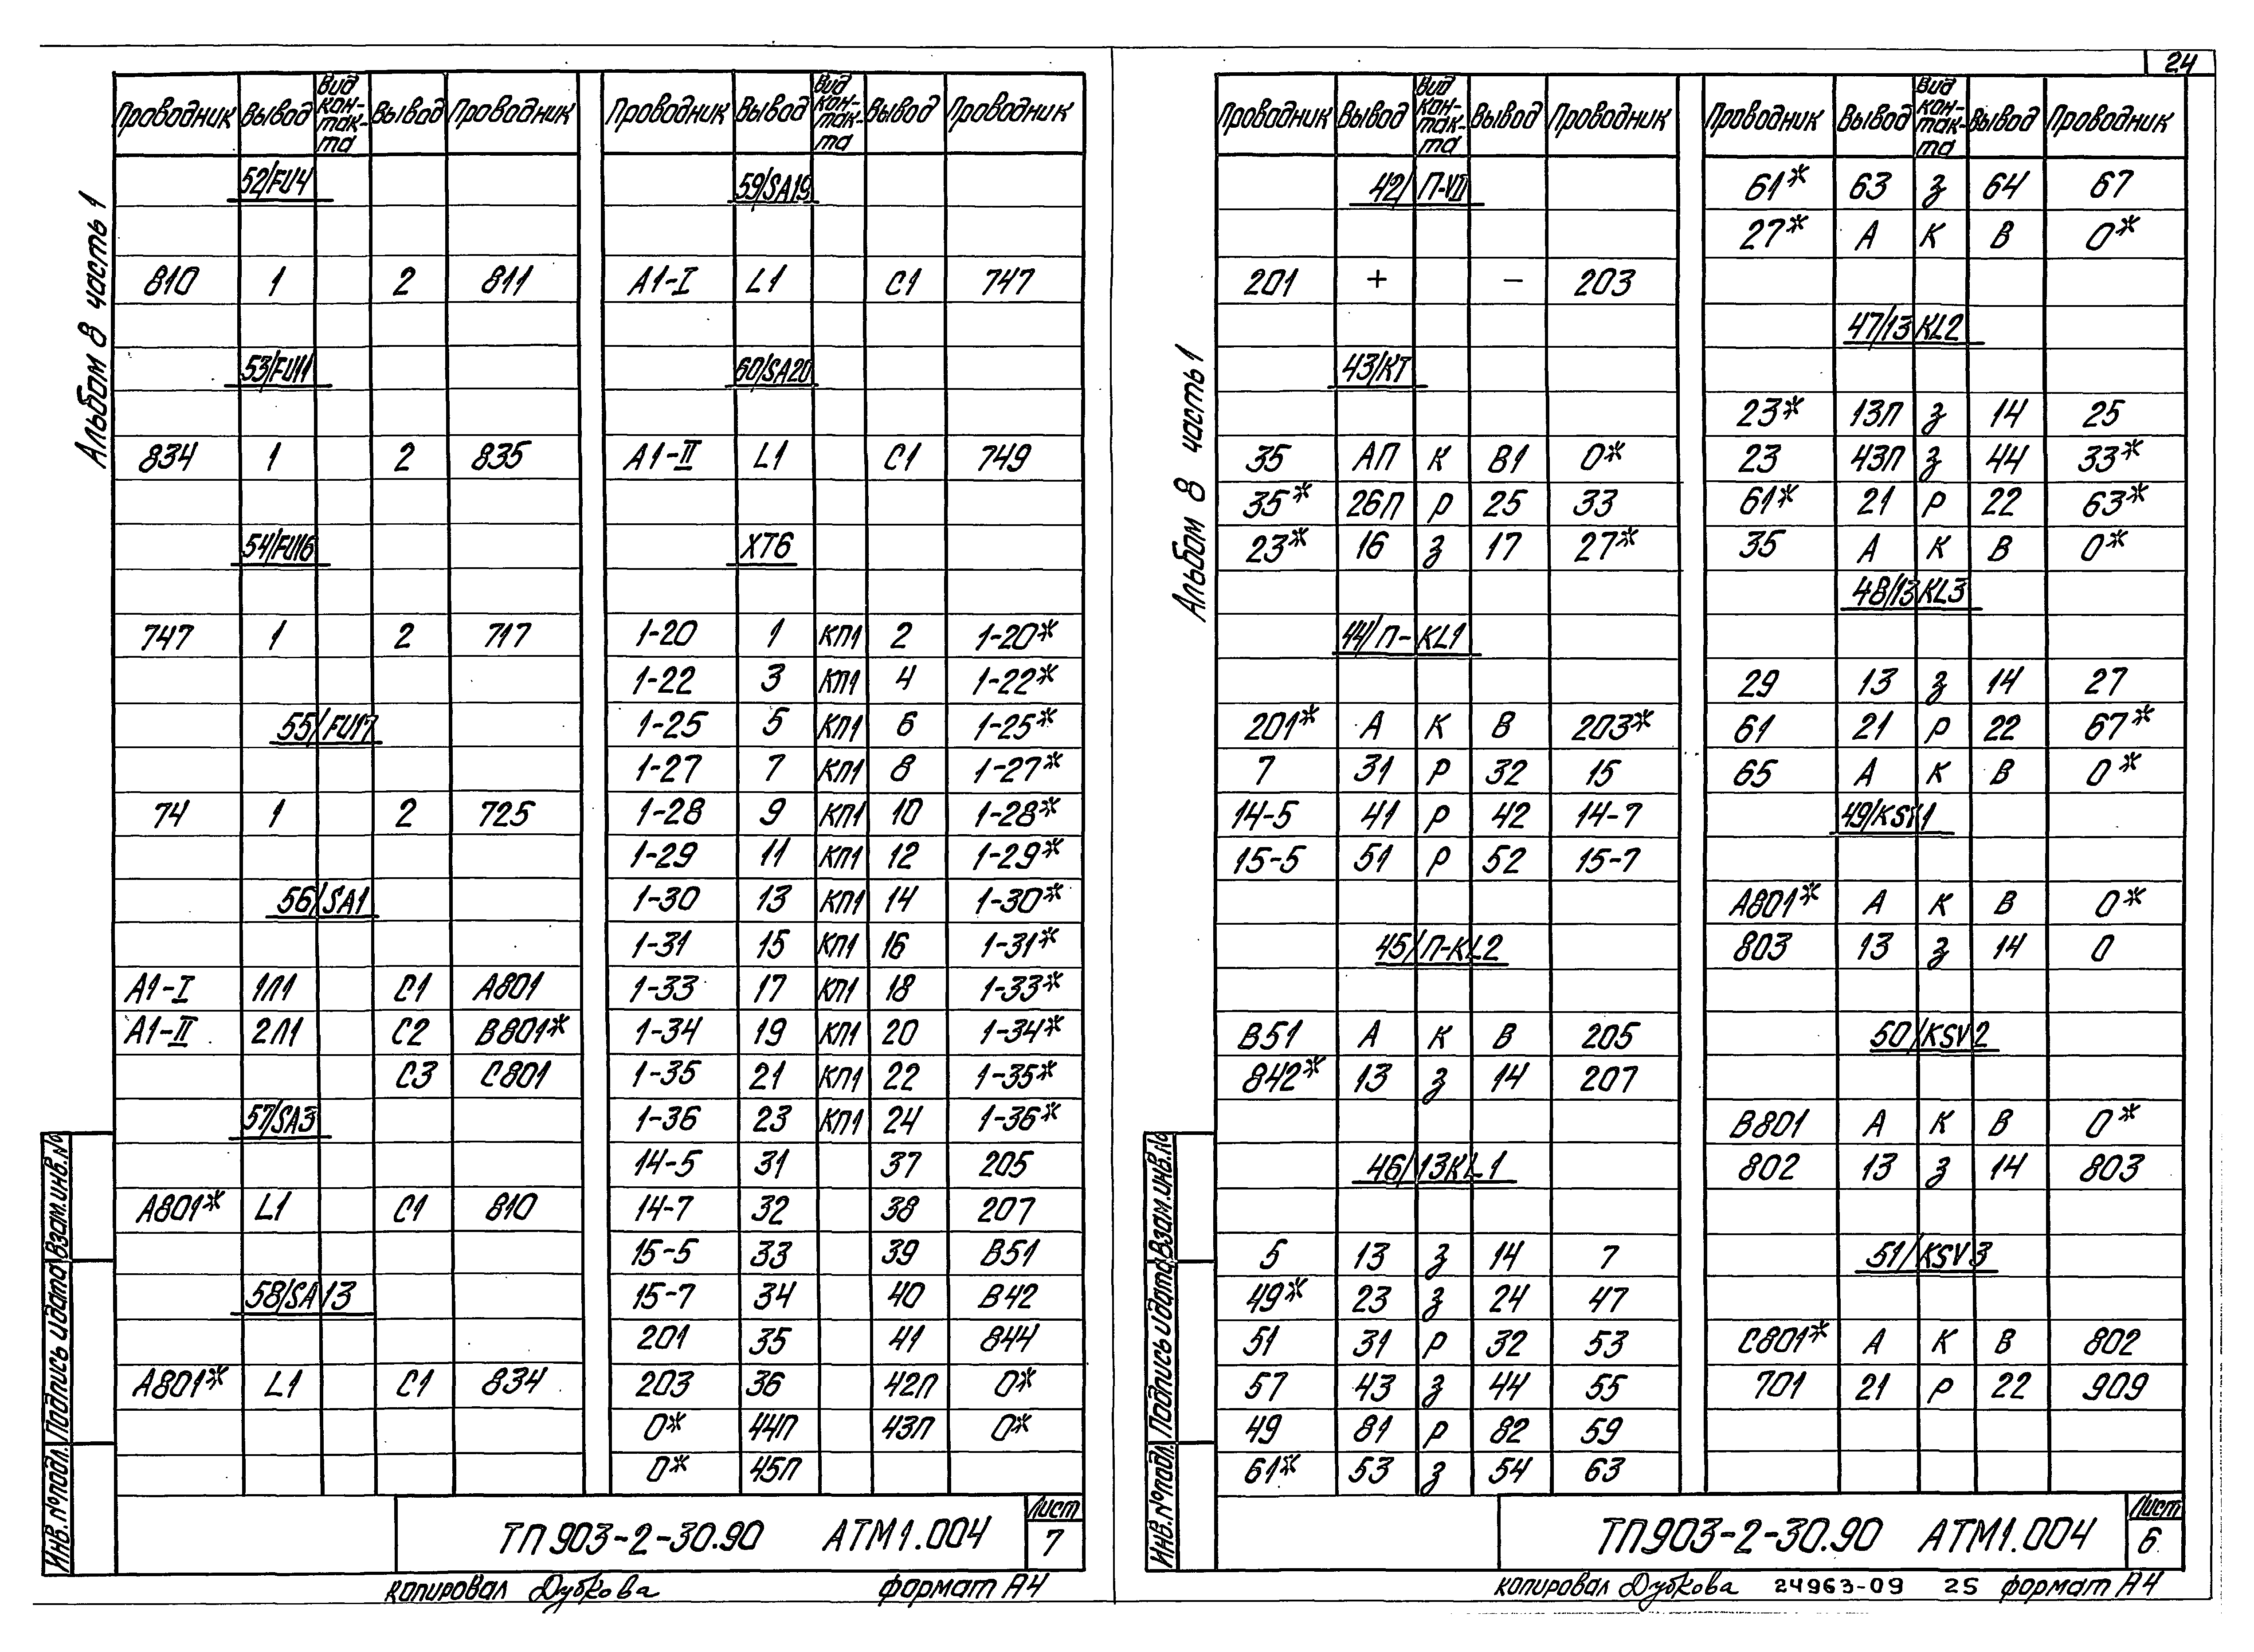 24
Альбом 8 часть 1
Проводник Вывод Вид кон-так-та Вывод Проводник
52/FU4
810 1 2 811
53/FU11
834 1 2 835
54/FU16
747 1 2 717
55/FU17
74 1 2 725
56/SA1
А1-I 1Л1 С1 А801
А1-II 2Л1 С2 В801*
С3 С801
57/SA3
А801* L1 С1 810
58/SA13
А801* L1 С1 834
Проводник Вывод Вид кон-так-та Вывод Проводник
59/SA19
А1-I L1 С1 747
60/SA20
А1-II L1 С1 749
ХТ6
1-20 1 КП1 2 1-20*
1-22 3 КП1 4 1-22*
1-25 5 КП1 6 1-25*
1-27 7 КП1 8 1-27*
1-28 9 КП1 10 1-28*
1-29 11 КП1 12 1-29*
1-30 13 КП1 14 1-30*
1-31 15 КП1 16 1-31*
1-33 17 КП1 18 1-33*
1-34 19 КП1 20 1-34*
1-35 21 КП1 22 1-35*
1-36 23 КП1 24 1-36*
14-5 31 37 205
14-7 32 38 207
15-5 33 39 В51
15-7 34 40 В42
201 35 41 844
203 36 42П 0*
0* 44П 43П 0*
0* 45П
Инв.№подл. Подпись и дата Взам.инв.№
ТП903-2-30.90 АТМ1.004
Лист
7
копировал Дубкова формат А4
Альбом 8 часть 1
Проводник Вывод Вид кон-так-та Вывод Проводник
42/П-VII
201 + - 203
43/КТ
35 АП К В1 0*
35* 26П Р 25 33
23* 16 З 17 27*
44/П-KL1
201* А К В 203*
7 31 Р 32 15
14-5 41 Р 42 14-7
15-5 51 Р 52 15-7
45/П-KL2
В51 А К В 205
842* 13 З 14 207
46/13KL1
5 13 З 14 7
49* 23 З 24 47
51 31 Р 32 53
57 43 З 44 55
49 81 Р 82 59
61* 53 З 54 63
Проводник Вывод Вид кон-так-та Вывод Проводник
61* 63 З 64 67
27* А К В 0*
47/13KL2
23* 13П З 14 25
23 43П З 44 33*
61* 21 Р 22 63*
35 А К В 0*
48/13KL3
29 13 З 14 27
61 21 Р 22 67*
65 А К В 0*
49/KSV1
А801* А К В 0*
803 13 З 14 0
50/KSV2
В801 А К В 0*
802 13 З 14 803
51/KSV3
С801* А К В 802
701 21 Р 22 909
Инв.№подл. Подпись и дата Взам.инв.№
ТП903-2-30.90 АТМ1.004
Лист
6
копировал Дубкова 24963-09 25 формат А4